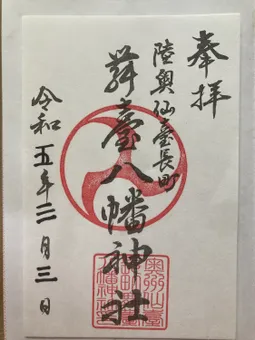 奉拝
陸奥仙臺長町
舞臺八幡神社
令和五年三月三日